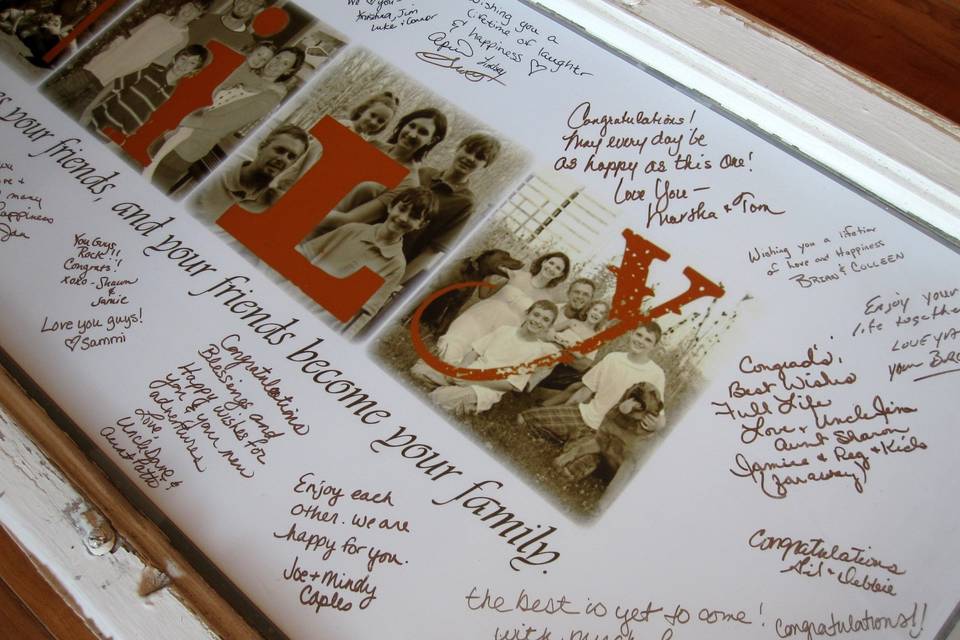 iLy
as your friends, and your friends become your family.
you -
Krishna, Jim
Luke & Connor
Wishing you a
lifetime of laughter
& happiness ♡
April
Congratulations!
May every day be
as happy as this one!
Love You -
Marsha & Tom
Wishing you a lifetime
of Love and Happiness
BRIAN & COLLEEN
Enjoy your
life together
LOVE YA
your BRO
Congrads!
Best Wishes
Full Life
Love & Uncle Jim
Aunt Sharon
Jamie & Reg & Kids
Congratulations
Sid & Debbie
Congratulations!!
the best is yet to come!
with much
many
happiness
You Guys
Rock!!
Congrats!
XOXO - Shawn
&
Jamie
Love you guys!
♡ Sammi
Congratulations
Blessings and
Happy wishes for
you & your new
adventure
Love
Uncle Dave &
Aunt Patti
Enjoy each
other. we are
happy for you.
Joe + Mindy
Caples